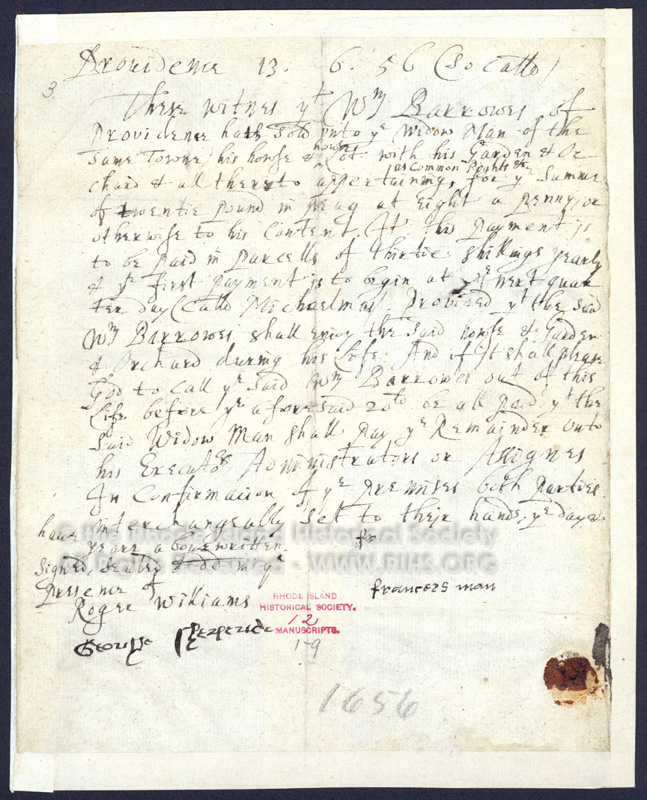 3.
Providence 13. 6. 56 (so calld)
These witnes yt Wm Barrowes of
Providence hath sold unto ye Widow Man of the
same Towne his house & house Lot with his Garden & Or
chard & all thereto appertaining, as Common Rights &c for ye Summe
of twentie pound in peag at Eight a penny or
otherwise to his Content. It. this payment is
to be paid in parcells of thirtie shillings yearly
& ye first payment is to begin at ye next quar
ter day (calld Michaelmas) Provided yt the said
Wm Barrowes shall enjoy the said house & Garden
& Orchard during his Life. And if it shall please
God to call ye said Wm Barrowes out of this
Life before ye aforesaid 20ld be all paid yt the
said Widow Man shall pay ye Remainder unto
his Executors Administrators or Assignes
In Confirmacion of ye premises both parties
have interchangeably set to their hands, ye day &
yeare above written
Signed, Sealed & in ye
presence of
Roger Williams
frances man
George
RHODE ISLAND
HISTORICAL SOCIETY.
12
MANUSCRIPTS.
1-9
1656
© The Rhode Island Historical Society
All Rights Reserved - WWW.RIHS.ORG